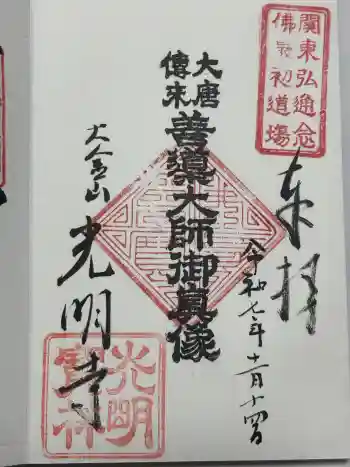 関東弘通念
佛最初道場
奉拝
令和七年十一月十四日
大唐
傳来
善導大師御真像
大舎山
光明寺
光明
寳林